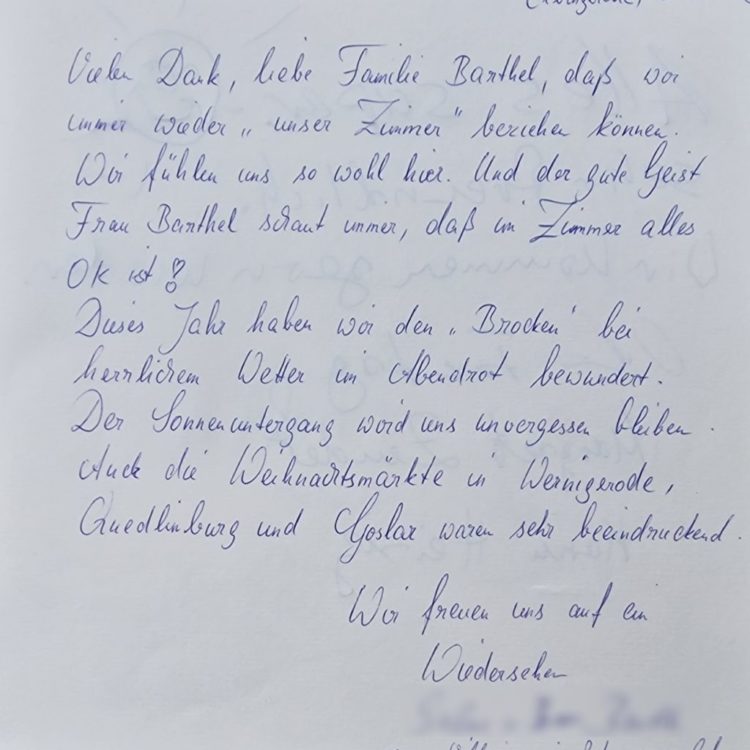 Vielen Dank, liebe Familie Barthel, daß wir
immer wieder „unser Zimmer" beziehen können.
Wir fühlen uns so wohl hier. Und der gute Geist
Frau Barthel schaut immer, daß im Zimmer alles
OK ist!
Dieses Jahr haben wir den „Brocken" bei
herrlichem Wetter im Abendrot bewundert.
Der Sonnenuntergang wird uns unvergessen bleiben.
Auch die Weihnachtsmärkte in Wernigerode,
Quedlinburg und Goslar waren sehr beeindruckend.
Wir freuen uns auf ein
Wiedersehen